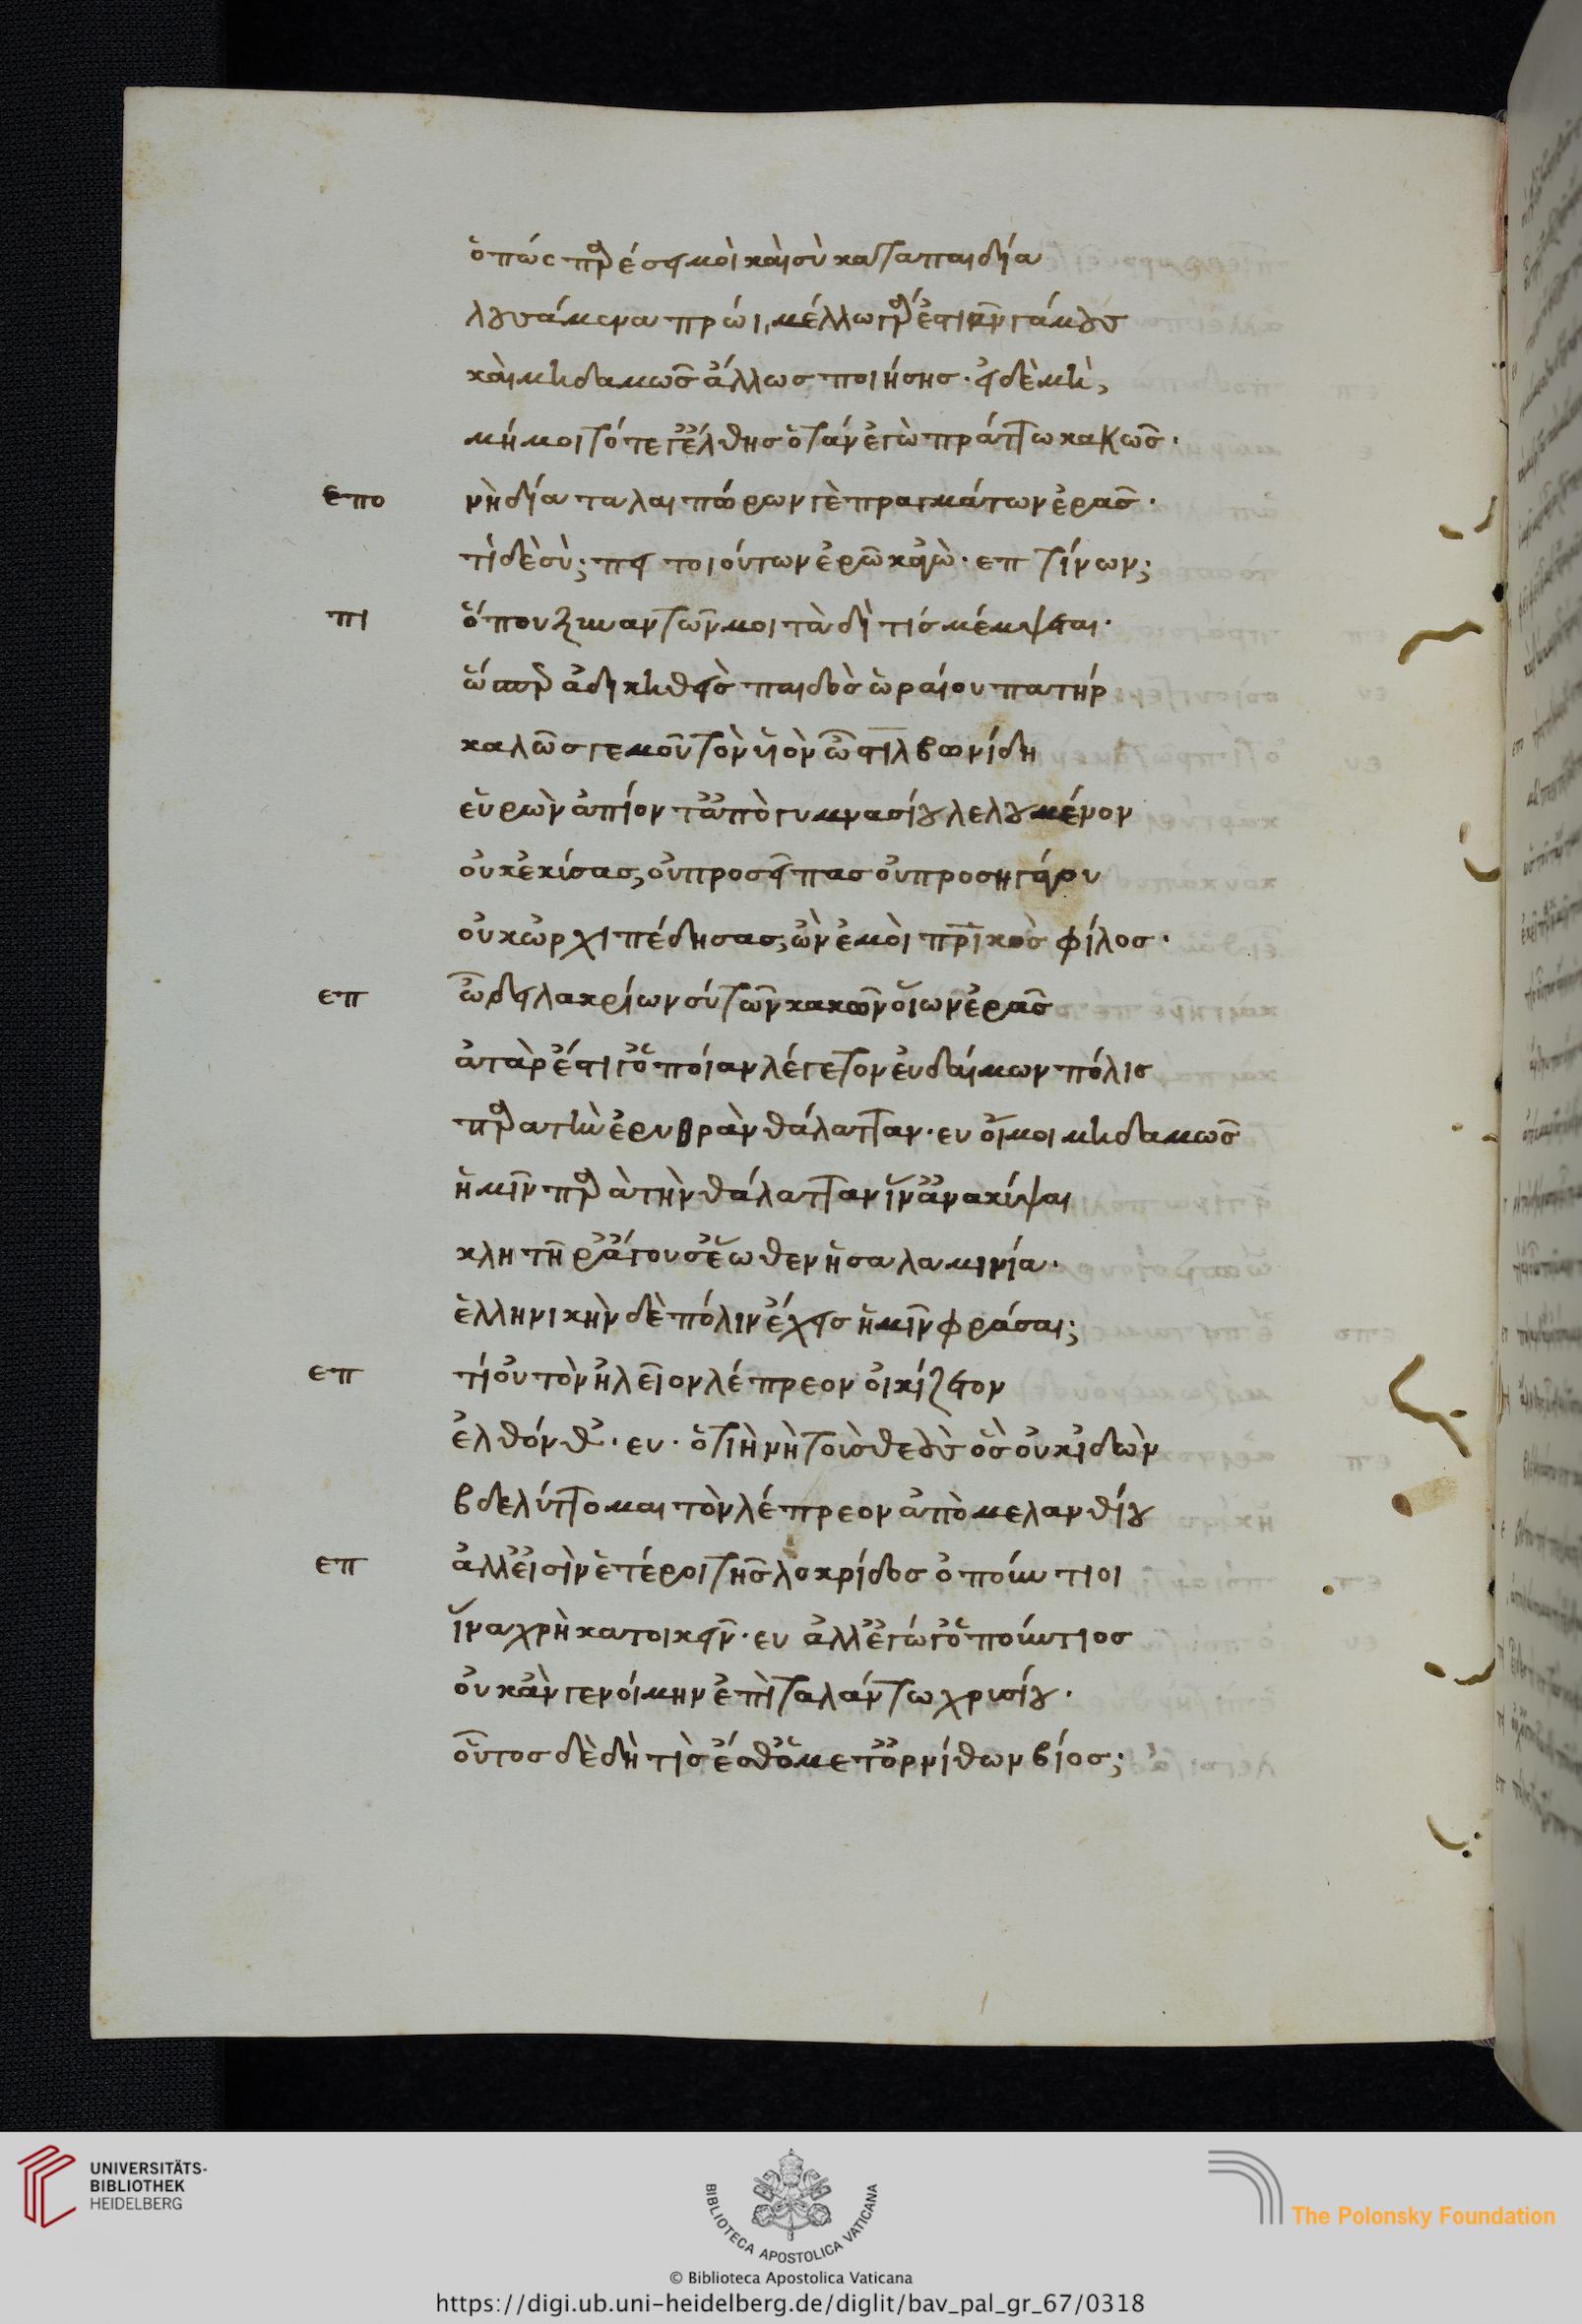 ὅπως παρέσει μοι καὶ σὺ καὶ τὰ παιδία
λουσάμενα πρώι, μέλλω γὰρ ἑστιᾶν γάμους
καὶ μηδαμῶς ἄλλως ποιήσης· εἰ δὲ μὴ,
μή μοι τότε γ' ἔλθης ὅταν ἐγὼ πράττω κακῶς·
επο νὴ δία ταλαιπώρων γὲ πραγμάτων ἐρᾶς·
τί δὲ σὺ; πει τοιούτων ἐρῶ κἀγὼ· επ τίνων;
πι ὅπου ξυναντῶν μοι ταδί τις μέμψεται·
ὥσπερ ἀδικηθεὶς παιδὸς ὡραίου πατήρ
καλῶς γε μοῦ τὸν υἱὸν ὦ στιλβωνίδη
εὑρὼν ἀπιόντ' ἀπὸ γυμνασίου λελουμένον
οὐκ ἔκυσας, οὐ προσεῖπας οὐ προσηγάγου
οὐκ ὠρχιπέδησας, ὢν ἐμοὶ πατρικὸς φίλος·
επ ὦ δειλακρίων σύ τῶν κακῶν οἵων ἐρᾶς
ἀτὰρ ἔστι γ' ὁποίαν λέγετον εὐδαίμων πόλις
παρα τὴν ἐρυθρὰν θάλατταν· ευ οἴμοι μηδαμῶς
ἡμῖν παρὰ τὴν θάλατταν ἵν' ἀνακύψαι
κλητῆρ' ἄγουσ' ἕωθεν ἡ σαλαμινία·
ἑλληνικὴν δὲ πόλιν ἔχεις ἡμῖν φράσαι;
επ τί οὐ τὸν ἠλεῖον λέπρεον οἰκίζετον
ἐλθόνθ'· ευ· ὁτιὴ νὴ τοὺς θεοὺς ὅς οὐκ ἰδὼν
βδελύττομαι τὸν λέπρεον ἀπὸ μελανθίου
επ ἀλλ' εἰσὶν ἑτέροι τῆς λοκρίδος ὀπούντιοι
ἵνα χρὴ κατοικεῖν· ευ ἀλλ' ἔγωγ' ὀπούντιος
οὐκ ἂν γενοίμην ἐπὶ ταλάντω χρυσίου·
οὗτος δὲ δὴ τὶς ἔσθ' ὁ μετ' ὀρνίθων βίος;
UNIVERSITÄTS-
BIBLIOTHEK
HEIDELBERG
BIBLIOTECA APOSTOLICA VATICANA
The Polonsky Foundation
© Biblioteca Apostolica Vaticana
https://digi.ub.uni-heidelberg.de/diglit/bav_pal_gr_67/0318